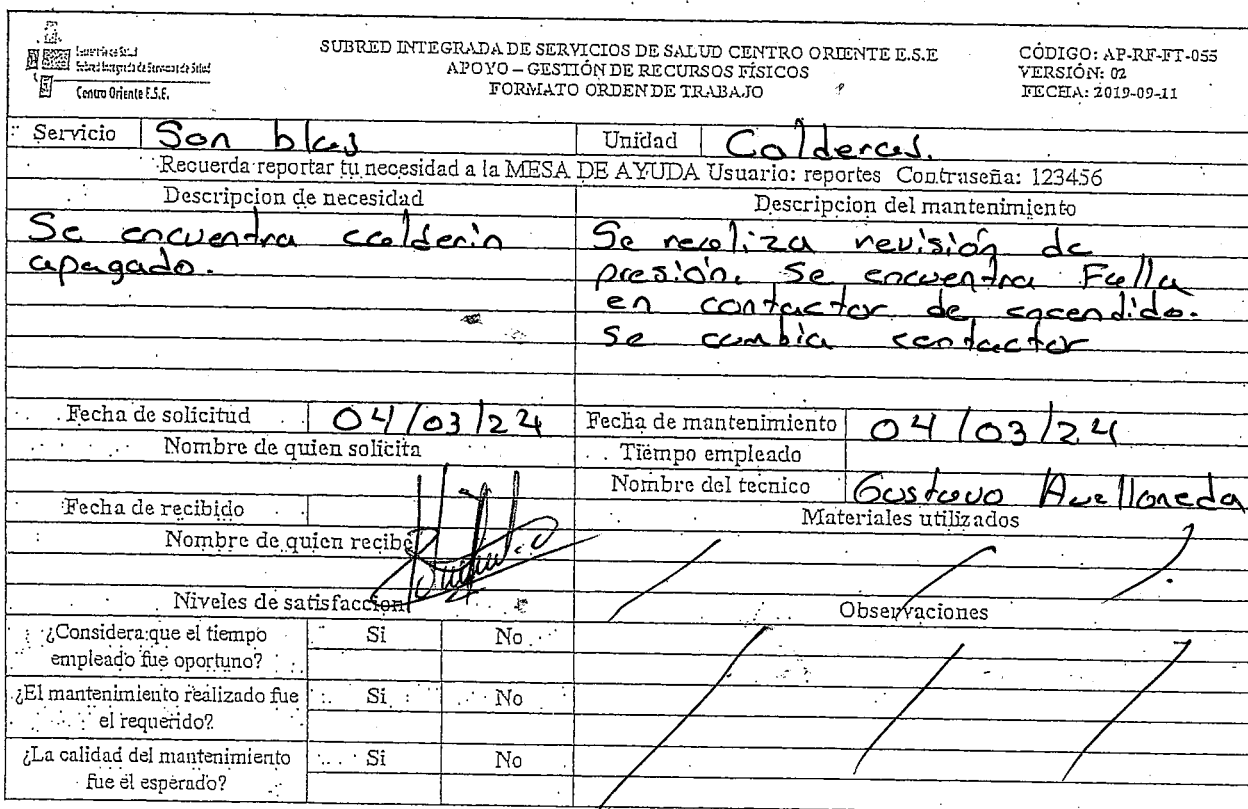 Centro Oriente E.S.E.
SUBRED INTEGRADA DE SERVICIOS DE SALUD CENTRO ORIENTE E.S.E
APOYO – GESTIÓN DE RECURSOS FÍSICOS
FORMATO ORDEN DE TRABAJO
CÓDIGO: AP-RF-FT-055
VERSIÓN: 02
FECHA: 2019-09-11
Servicio San blas Unidad Calderas.
Recuerda reportar tu necesidad a la MESA DE AYUDA Usuario: reportes Contraseña: 123456
Descripcion de necesidad
Se encuentra calderin
apagado.
Descripcion del mantenimiento
Se realiza revisión de
presión. Se encuentra Falla
en contactor de encendido.
Se cambia contactor
Fecha de solicitud 04/03/24
Fecha de mantenimiento 04/03/24
Nombre de quien solicita
Tiempo empleado
Nombre del tecnico Gustavo Avellaneda
Fecha de recibido
Materiales utilizados
Nombre de quien recibe
Niveles de satisfaccion
Observaciones
¿Considera que el tiempo
empleado fue oportuno?
Si No
¿El mantenimiento realizado fue
el requerido?
Si No
¿La calidad del mantenimiento
fue el esperado?
Si No